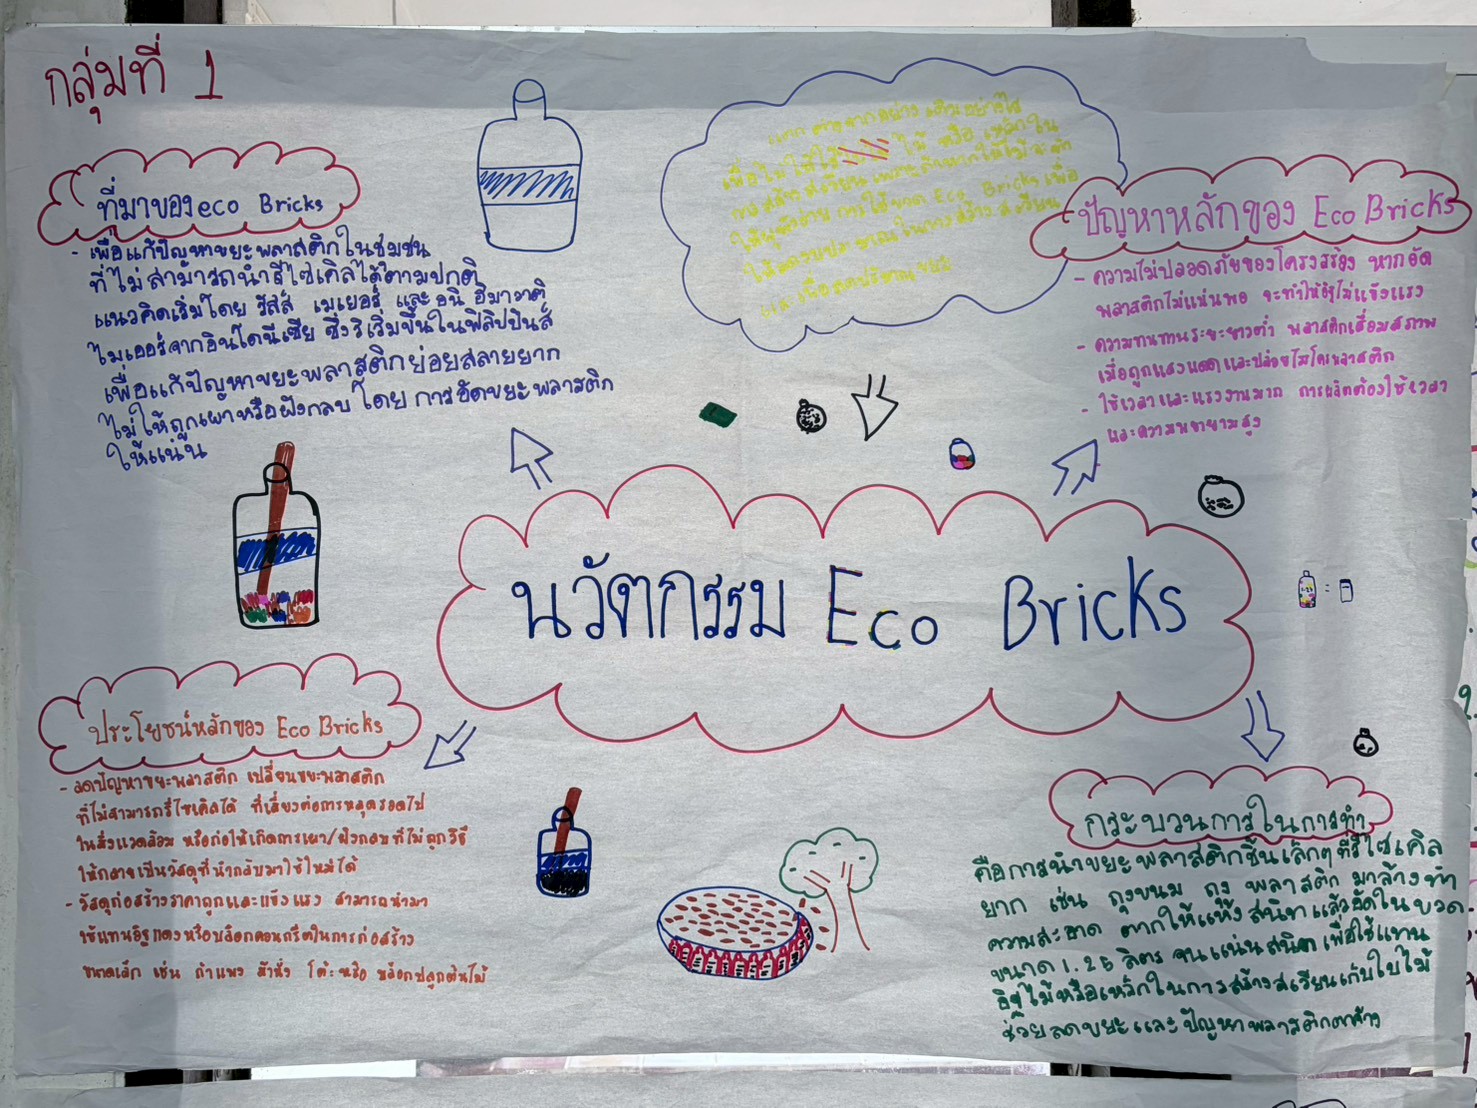 กลุ่มที่ 1
ที่มาของ eco Bricks
- เพื่อแก้ปัญหาขยะพลาสติกในชุมชน
ที่ไม่สามารถนำรีไซเคิลได้ตามปกติ
แนวคิดเริ่มโดย รัสส์ เมเยอร์ และ อนี ฮิมาวาตี
ไมเออร์จากอินโดนีเซีย ซึ่งริเริ่มขึ้นในฟิลิปปินส์
เพื่อแก้ปัญหาขยะพลาสติกย่อยสลายยาก
ไม่ให้ถูกเผาหรือฝังกลบ โดย การอัดขยะพลาสติก
ให้แน่น
แตก ต่าง จาก อย่าง เดิม
เพื่อไม่ให้ใช้ ไม้ หรือ เหล็กใน
การสร้างสเวียน
การใช้ขวด Eco Bricks เพื่อ
ในการสร้างสเวียน
และเพื่อลดปริมาณขยะ
ปัญหาหลักของ Eco Bricks
- ความไม่ปลอดภัยของโครงสร้าง หากอัด
พลาสติกไม่แน่นพอ จะทำให้อิฐไม่แข็งแรง
- ความทนทานระยะยาวต่ำ พลาสติกเสื่อมสภาพ
เมื่อถูกแสงแดดและปล่อยไมโครพลาสติก
- ใช้เวลาและแรงงานมาก การผลิตต้องใช้เวลา
และความพยายามสูง
นวัตกรรม Eco Bricks
ประโยชน์หลักของ Eco Bricks
- ลดปัญหาขยะพลาสติก เปลี่ยนขยะพลาสติก
ที่ไม่สามารถรีไซเคิลได้ ที่เสี่ยงต่อการหลุดรอดไป
ในสิ่งแวดล้อม หรือก่อให้เกิดการเผา/ฝังกลบที่ไม่ถูกวิธี
ให้กลายเป็นวัสดุที่นำกลับมาใช้ใหม่ได้
- วัสดุก่อสร้างราคาถูกและแข็งแรง สามารถนำมา
ใช้แทนอิฐแดงหรือบล็อกคอนกรีตในการก่อสร้าง
ขนาดเล็ก เช่น กำแพง ม้านั่ง โต๊ะ หรือ บล็อกปลูกต้นไม้
กระบวนการในการทำ
คือการนำขยะพลาสติกชิ้นเล็กๆ ที่รีไซเคิล
ยาก เช่น ถุงขนม ถุง พลาสติก มาล้างทำ
ความสะอาด ตากให้แห้ง สนิท แล้วอัดใน ขวด
ขนาด 1.25 ลิตร จนแน่นสนิท เพื่อใช้แทน
อิฐไม้หรือเหล็กในการสร้างสเวียนเก็บใบไม้
ช่วยลดขยะและปัญหาพลาสติกตกค้าง